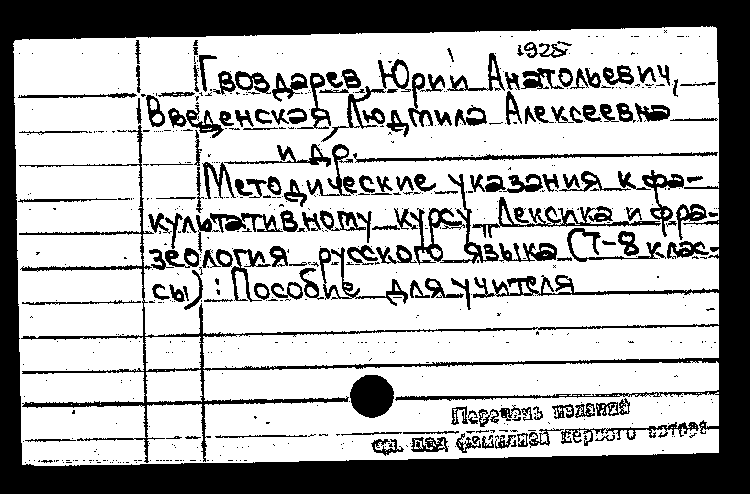 1928
Гвоздарев, Юрий Анатольевич,
Введенская, Людмила Алексеевна
и др.
Методические указания к фа-
культативному курсу "Лексика и фра-
зеология русского языка (7-8 клас-
сы) : Пособие для учителя
Перечень изданий
см. под фамилией первого автора